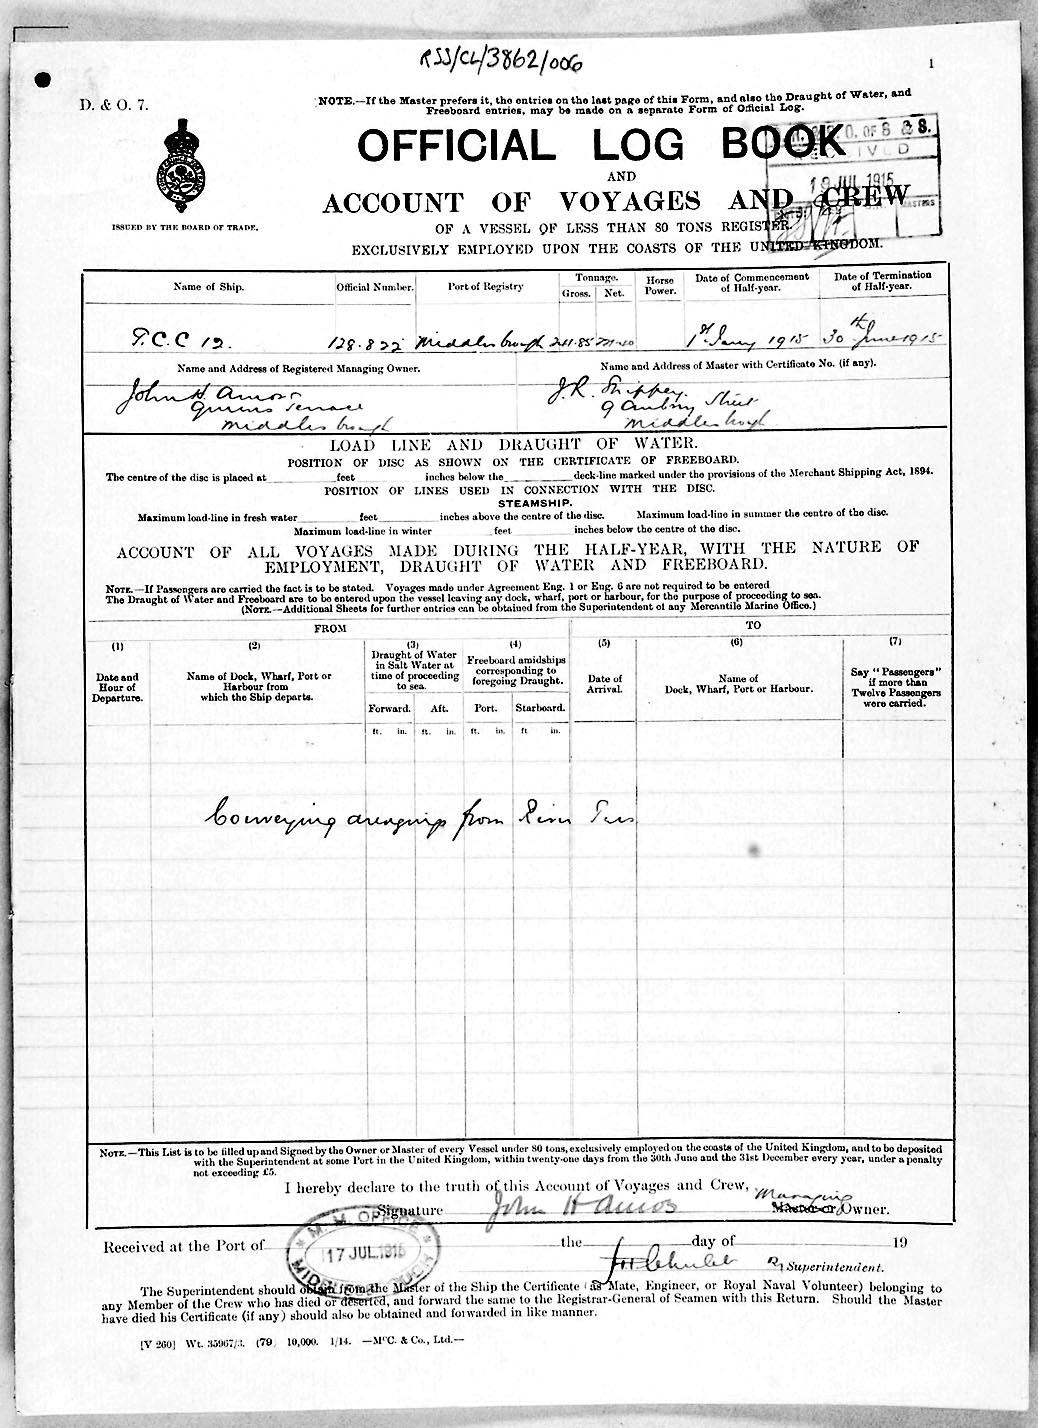 RSS/CL/3862/006
1
D. & O. 7.
NOTE.—If the Master prefers it, the entries on the last page of this Form, and also the Draught of Water, and
Freeboard entries, may be made on a separate Form of Official Log.
OFFICIAL LOG BOOK
AND
ACCOUNT OF VOYAGES AND CREW
OF A VESSEL OF LESS THAN 80 TONS REGISTER.
EXCLUSIVELY EMPLOYED UPON THE COASTS OF THE UNITED KINGDOM.
ISSUED BY THE BOARD OF TRADE.
O. OF S & S.
RECEIVED
19 JUL 1915
MASTERS
Name of Ship.
Official Number.
Port of Registry
Tonnage.
Gross.
Net.
Horse
Power.
Date of Commencement
of Half-year.
Date of Termination
of Half-year.
T.C.C 12.
128.822
Middlesbrough
241.85
221.40
1st Jany 1915
30th June 1915
Name and Address of Registered Managing Owner.
Name and Address of Master with Certificate No. (if any).
John H. Amos
Queens Terrace
Middlesbrough
J.R. Shippey.
9 Street
Middlesbrough
LOAD LINE AND DRAUGHT OF WATER.
POSITION OF DISC AS SHOWN ON THE CERTIFICATE OF FREEBOARD.
The centre of the disc is placed at feet inches below the deck-line marked under the provisions of the Merchant Shipping Act, 1894.
POSITION OF LINES USED IN CONNECTION WITH THE DISC.
STEAMSHIP.
Maximum load-line in fresh water feet inches above the centre of the disc. Maximum load-line in summer the centre of the disc.
Maximum load-line in winter feet inches below the centre of the disc.
ACCOUNT OF ALL VOYAGES MADE DURING THE HALF-YEAR, WITH THE NATURE OF
EMPLOYMENT, DRAUGHT OF WATER AND FREEBOARD.
NOTE.—If Passengers are carried the fact is to be stated. Voyages made under Agreement Eng. 1 or Eng. 6 are not required to be entered
The Draught of Water and Freeboard are to be entered upon the vessel leaving any dock, wharf, port or harbour, for the purpose of proceeding to sea.
(NOTE.—Additional Sheets for further entries can be obtained from the Superintendent of any Mercantile Marine Office.)
FROM
TO
(1)
Date and
Hour of
Departure.
(2)
Name of Dock, Wharf, Port or
Harbour from
which the Ship departs.
(3)
Draught of Water
in Salt Water at
time of proceeding
to sea.
Forward.
Aft.
(4)
Freeboard amidships
corresponding to
foregoing Draught.
Port.
Starboard.
(5)
Date of
Arrival.
(6)
Name of
Dock, Wharf, Port or Harbour.
(7)
Say "Passengers"
if more than
Twelve Passengers
were carried.
ft. in. ft. in. ft. in. ft in.
Conveying dredgings from River Tees
NOTE.—This List is to be filled up and Signed by the Owner or Master of every Vessel under 80 tons, exclusively employed on the coasts of the United Kingdom, and to be deposited
with the Superintendent at some Port in the United Kingdom, within twenty-one days from the 30th June and the 31st December every year, under a penalty
not exceeding £5.
I hereby declare to the truth of this Account of Voyages and Crew,
Managing
Signature John H Amos Master or Owner.
M. M. OFFICE
17 JUL 1915
MIDDLESBROUGH
Received at the Port of the day of 19
Superintendent.
The Superintendent should obtain from the Master of the Ship the Certificate (as Mate, Engineer, or Royal Naval Volunteer) belonging to
any Member of the Crew who has died or deserted, and forward the same to the Registrar-General of Seamen with this Return. Should the Master
have died his Certificate (if any) should also be obtained and forwarded in like manner.
[V 260] Wt. 35967/3. (79 10,000. 1/14. —McC. & Co., Ltd.—